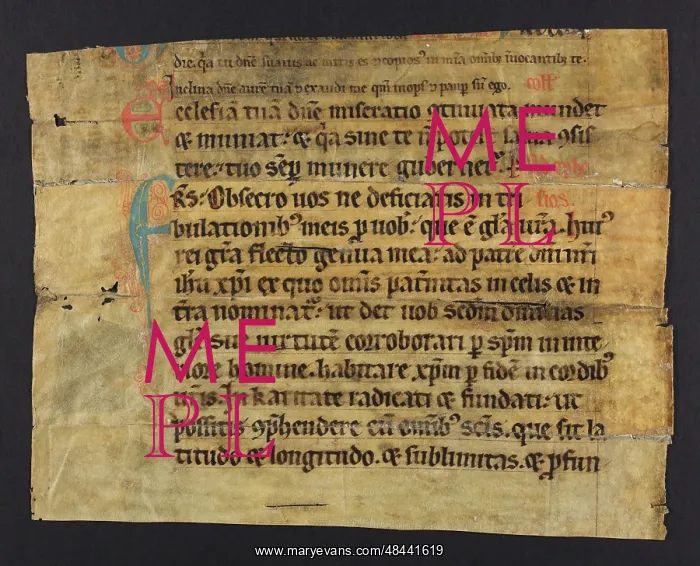 dñe. qa tu dñe suauis ac mitis es ⁊ copios' in mia omĩb; inuocantib; te.
Inclina dñe aurē tuã ⁊ exaudi me qm̃ inops ⁊ paup sũ ego. coll'
ecclesiã tuã dñe miseratio gtinuata mundet
& muniat. & qa sine te ñ potest salua gsis
tere. tuo sep munere gubernet.
frs. Obsecro uos ne deficiatis in tri
bulationib' meis p uob. que ē gla ur̃a. hui'
rei gra flecto genua mea. ad patrē dñi nr̃i
ihu xpi ex quo omĩs pat'nitas in celis & in
tra nominat̃. ut det uob scdm diuitias
glē sue uirtutē corroborari p spm in inte
riore homine. habitare xpm p fidē in cordib'
ur̃is. In karitate radicati & fundati. ut
possitis gphendere cũ omĩb' scĩs. que sit la
titudo & longitudo. & sublimitas. & pfun
ME
PL
ME
PL
www.maryevans.com/48441619